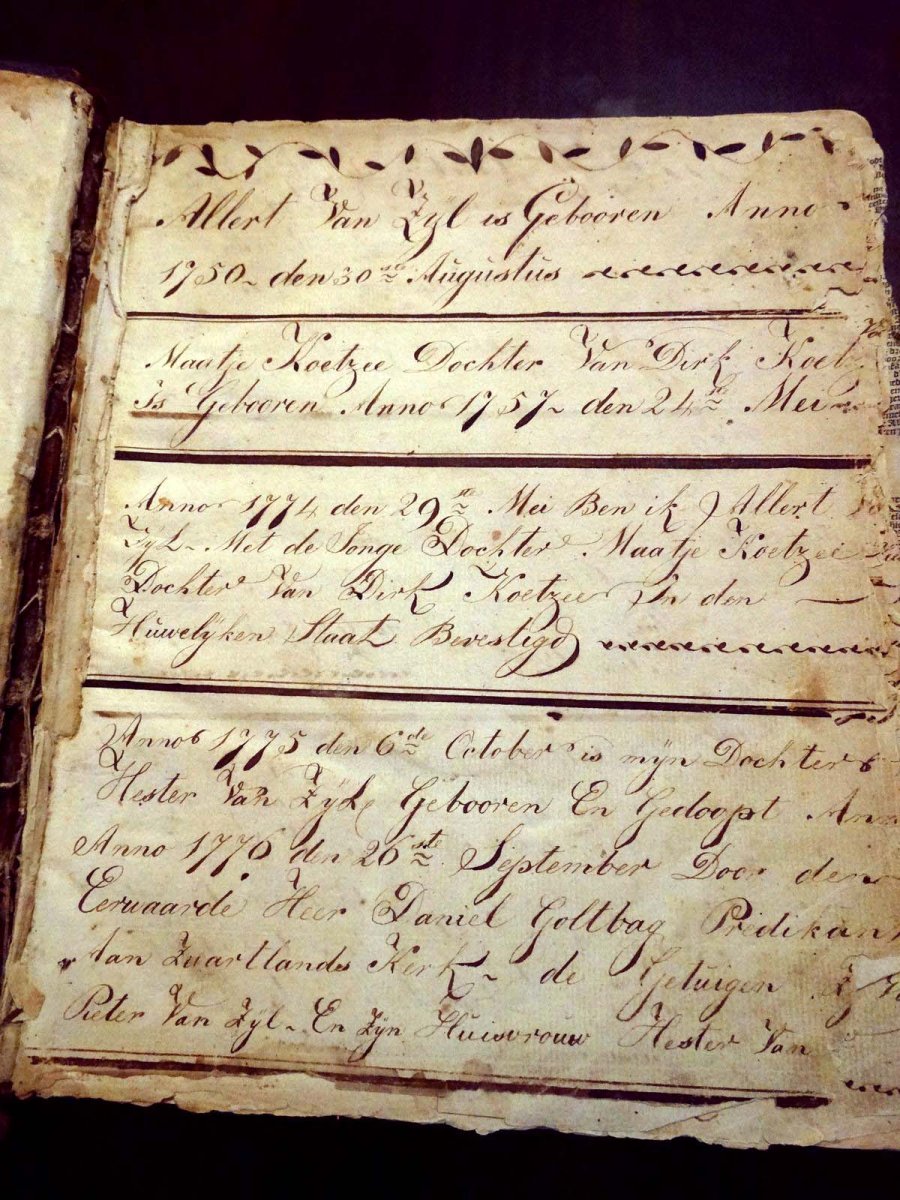 Allert Van Zyl is Gebooren Anno
1750 den 30ste Augustus
Maatje Koetzee Dochter Van Dirk Koetz
Is Gebooren Anno 1757 den 24ste Mei
Anno 1774 den 29ste Mei Ben ik Allert
Zyl Met de Jonge Dochter Maatje Koetzee
Dochter Van Dirk Koetzee In den
Huwelyken Staat Bevestigd
Anno 1775 den 6de October is mÿn Dochter
Hester Van Zÿl Gebooren En Gedoopt An
Anno 1776 den 26ste September Door den
Eerwaarde Heer Daniel Goltbag Predikan
Aan Zwartlands Kerk de Getuigen
Pieter Van Zÿl En Zÿn Huisvrouw Hester Van